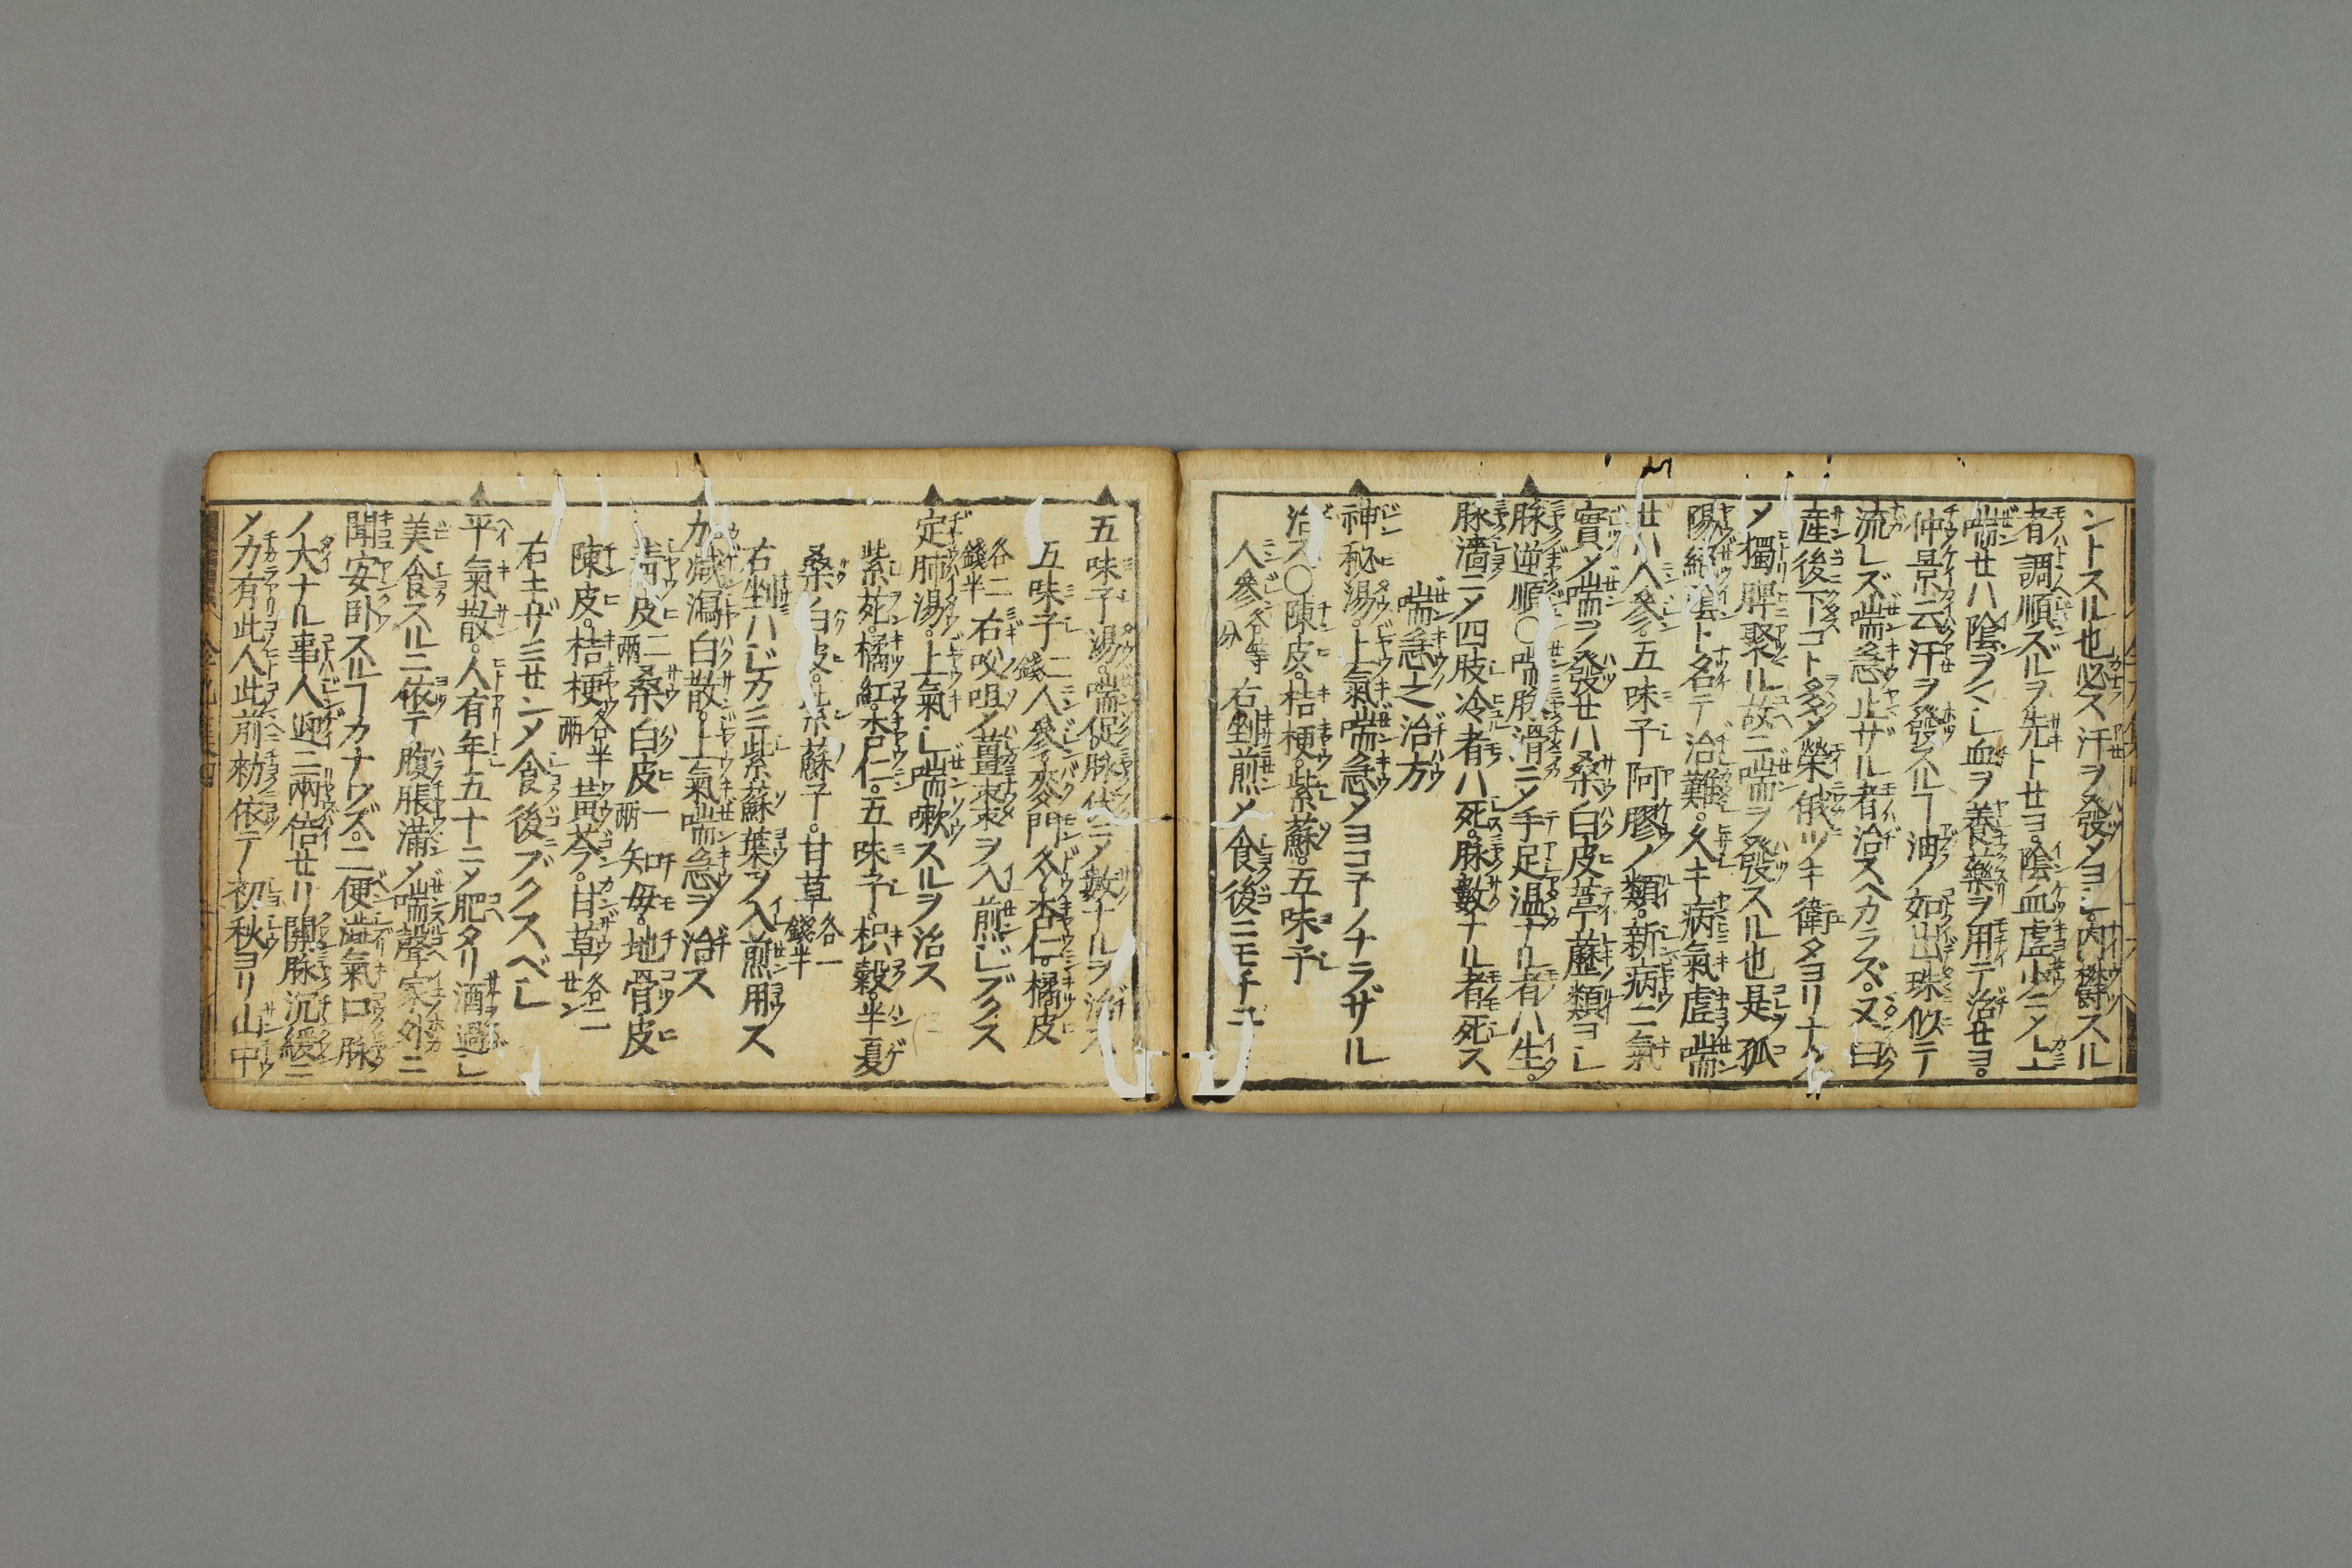 ントスル也必ス汗ヲ發メヨシ内欝スル
者調順ズルヲ先トせヨ。陰血虚少ニメ上
喘せハ陰ヲクニシ血ヲ養藥ヲ用テ治せヨ。
仲景云汗ヲ發スルヿ油ノ如出珠似テ
流レズ喘急止ザル者治スヘカラズ。又曰
産後下コト多メ榮俄ツキ衛タヨリナク
メ獨脾聚ル故ニ喘ヲ發スル也是孤
陽絶陰ト名テ治難。久キ病氣虚喘
せハ人參。五味子阿膠ノ類。新病ニ氣
實メ喘ヲ發せハ桑ノ白皮葶藶類ヨシ
脉逆順〇喘脉滑ニメ手足温ナル者ハ生。
脉濇ニメ四肢冷者ハ死。脉數ナル者死ス
喘急之治方
神秘湯。上氣喘急メヨコチノナラザル
治ス〇陳皮。桔梗。紫蘇。五味子
人參各等分 右剉煎メ食後ニモチ
五味子湯。喘促脉伏ニメ數ナルヲ治ス
五味子二錢人參。麥門冬。杏仁。橘皮
各二錢半 右㕮咀メ薑棗ヲ入煎ジブクス
定肺湯。上氣シ喘嗽スルヲ治ス
紫苑。橘紅。杏仁。五味子。枳殼。半夏
桑ノ白皮。紫蘇子。甘草各一錢半
右剉ハジカミ紫蘇葉ヲ入煎用ス
加减瀉白散。上氣喘急ヲ治ス
青皮二兩桑ノ白皮一兩知母。地骨皮
陳皮。桔梗各半兩黄芩。甘草各二せン
右キザミせンメ食後ブクスベシ
平氣散。人有年五十ニメ肥タリ酒過シ
美食スルニ依テ腹脹滿メ喘聲家外ニ
聞安卧スルヿカナワズ。二便澁氣口脉
ノ大ナル事人迎ニ兩倍せリ關脉沉緩ニ
メ力有此人此前勑依テ初秋ヨリ山中